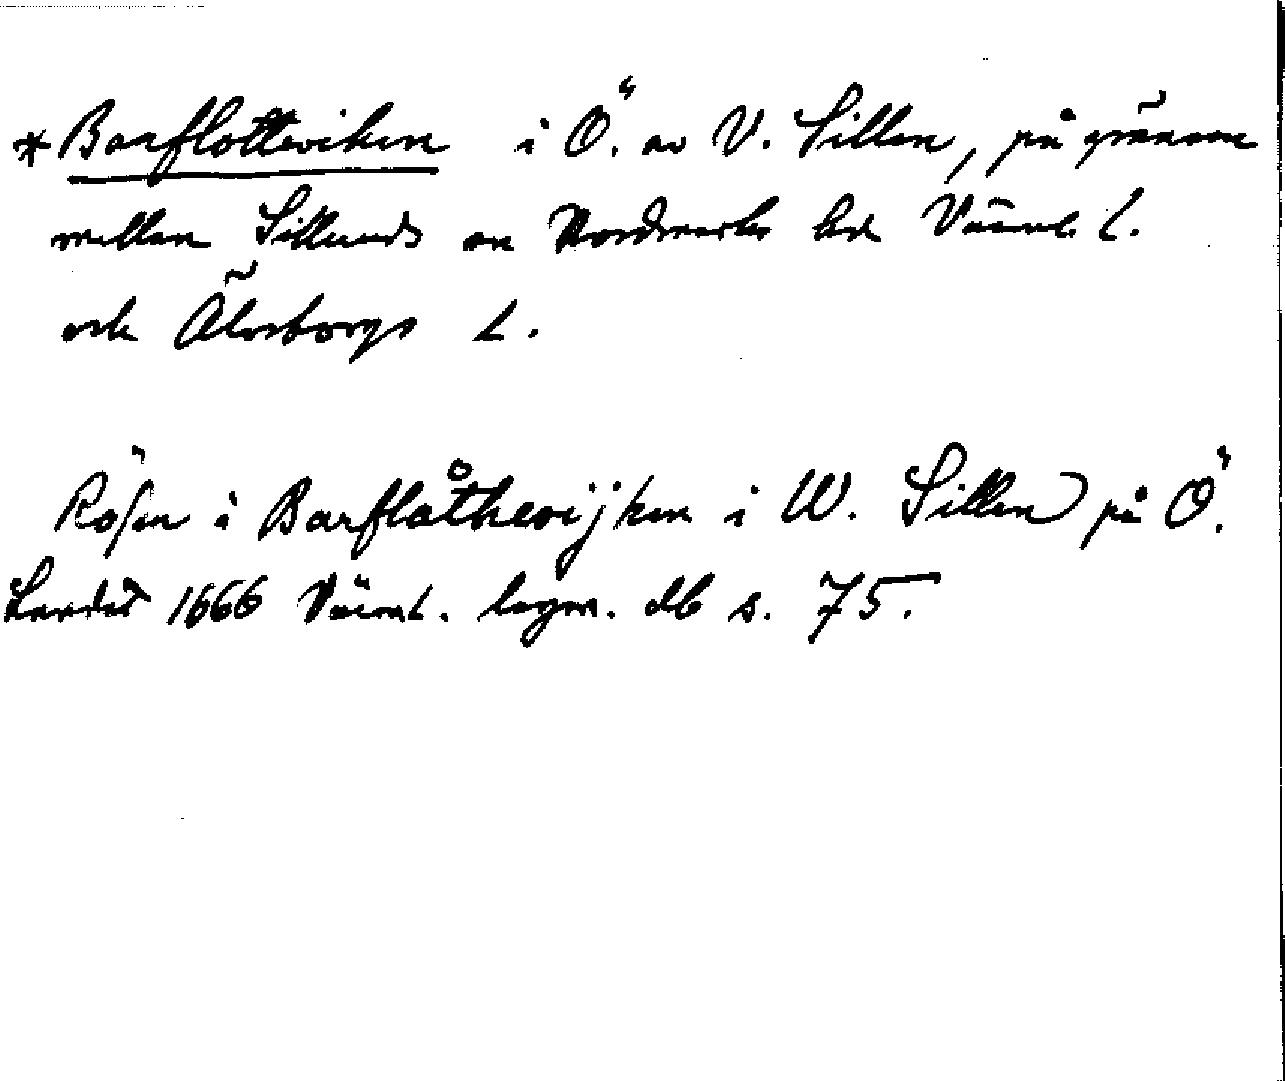 * Barflotteviken i Ö. av V. Sillen, på gränsen
mellan Silleruds sn Nordmarks hd Värml. l.
och Älvsborgs l.
Rösen i Barflåthevijken i W. Sillen på Ö.
Landet 1666 Värml. lagm. db s. 75.